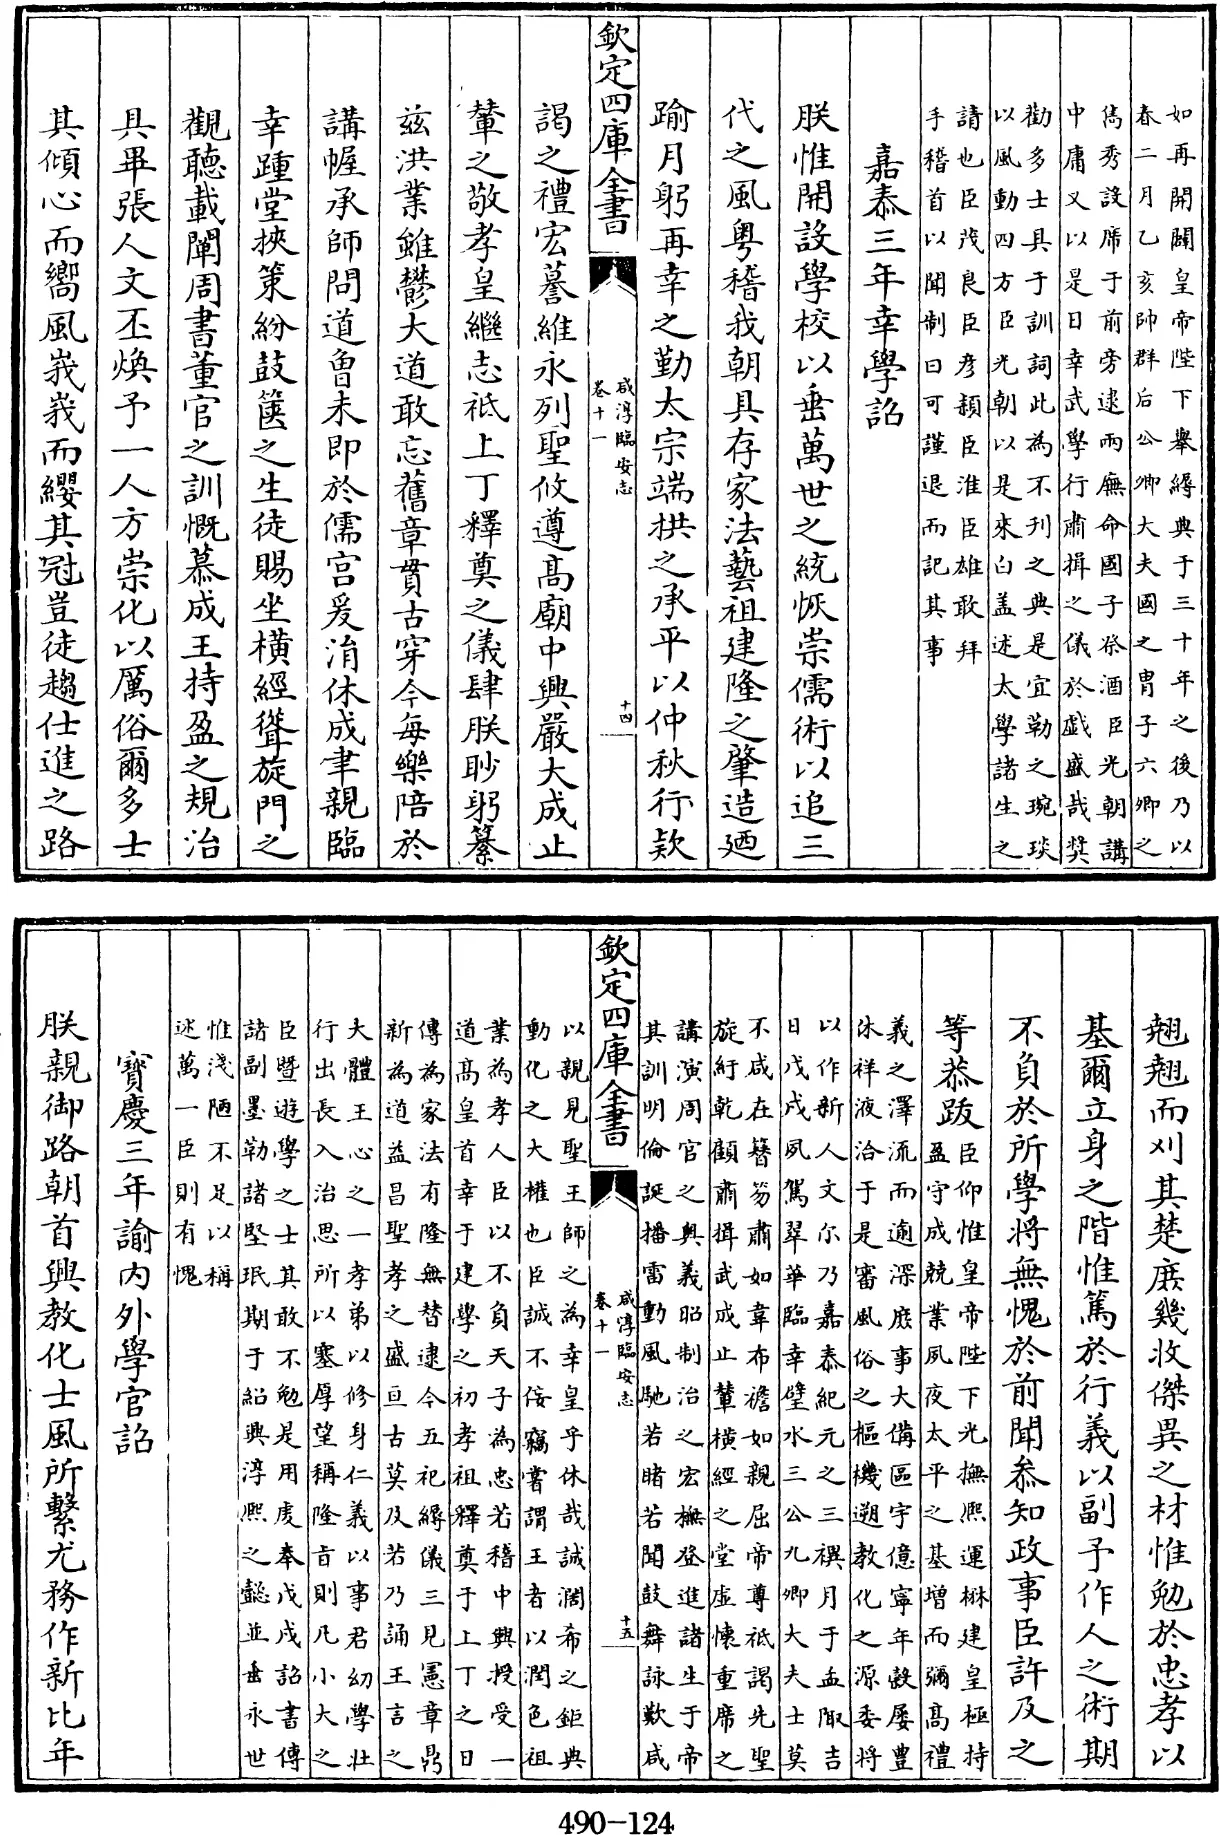 如再開闢皇帝陛下舉縟典于三十年之後乃以
春二月乙亥帥群后公卿大夫國之胄子六卿之
儁秀設席于前旁逮兩廡命國子祭酒臣光朝講
中庸又以是日幸武學行肅揖之儀於戲盛哉奬
勸多士具于訓詞此為不刋之典是宜勒之琬琰
以風動四方臣光朝以是來白盖述太學諸生之
請也臣茂良臣彦頴臣淮臣雄敢拜
手稽首以聞制曰可謹退而記其事
嘉泰三年幸學詔
朕惟開設學校以垂萬世之統恢崇儒術以追三
代之風粤稽我朝具存家法藝祖建隆之肇造廼
踰月躬再幸之勤太宗端拱之承平以仲秋行款
欽定四庫全書
咸淳臨安志
卷十一
十四
謁之禮宏摹維永列聖攸遵高廟中興嚴大成止
輦之敬孝皇繼志祗上丁釋奠之儀肆朕眇躬纂
兹洪業雖鬱大道敢忘舊章貫古穿今每樂陪於
講幄承師問道曽未即於儒宮爰涓休成聿親臨
幸踵堂挾策紛鼓篋之生徒賜坐横經聳旋門之
觀聽載闡周書董官之訓慨慕成王持盈之規治
具畢張人文丕煥予一人方崇化以厲俗爾多士
其傾心而嚮風峩峩而纓其冠豈徒趨仕進之路
翹翹而刈其楚庻幾收傑異之材惟勉於忠孝以
基爾立身之階惟篤於行義以副予作人之術期
不負於所學將無愧於前聞叅知政事臣許及之
等恭跋臣仰惟皇帝陛下光撫熙運楙建皇極持
盈守成兢業夙夜太平之基增而彌高禮
義之澤流而逾深庻事大備區宇億寧年穀屢豊
休祥液洽于是審風俗之樞機遡教化之源委將
以作新人文尓乃嘉泰紀元之三禩月于孟陬吉
日戊戌夙駕翠華臨幸璧水三公九卿大夫士莫
不咸在簪笏肅如韋布襜如親屈帝尊祗謁先聖
旋紆乾顧肅揖武成止輦横經之堂虚懐重席之
講演周官之奥義昭制治之宏橅登進諸生于帝
其訓明倫誕播雷動風馳若睹若聞鼓舞詠歎咸
欽定四庫全書
咸淳臨安志
卷十一
十五
以親見聖王師之為幸皇乎休哉誠濶希之鉅典
動化之大權也臣誠不佞竊嘗謂王者以潤色祖
業為孝人臣以不負天子為忠若稽中興授受一
道髙皇首幸于建學之初孝祖釋奠于上丁之日
傳為家法有隆無替逮今五祀縟儀三見憲章鼎
新為道益昌聖孝之盛亘古莫及若乃誦王言之
大體王心之一孝弟以修身仁義以事君幼學壯
行出長入治思所以塞厚望稱隆㫖則凡小大之
臣暨遊學之士其敢不勉是用䖍奉戊戌詔書傳
諸副墨勒諸堅珉期于紹興淳熙之懿並垂永世
惟淺陋不足以稱
述萬一臣則有愧
寳慶三年諭内外學官詔
朕親御路朝首興教化士風所繫尤務作新比年
490-124